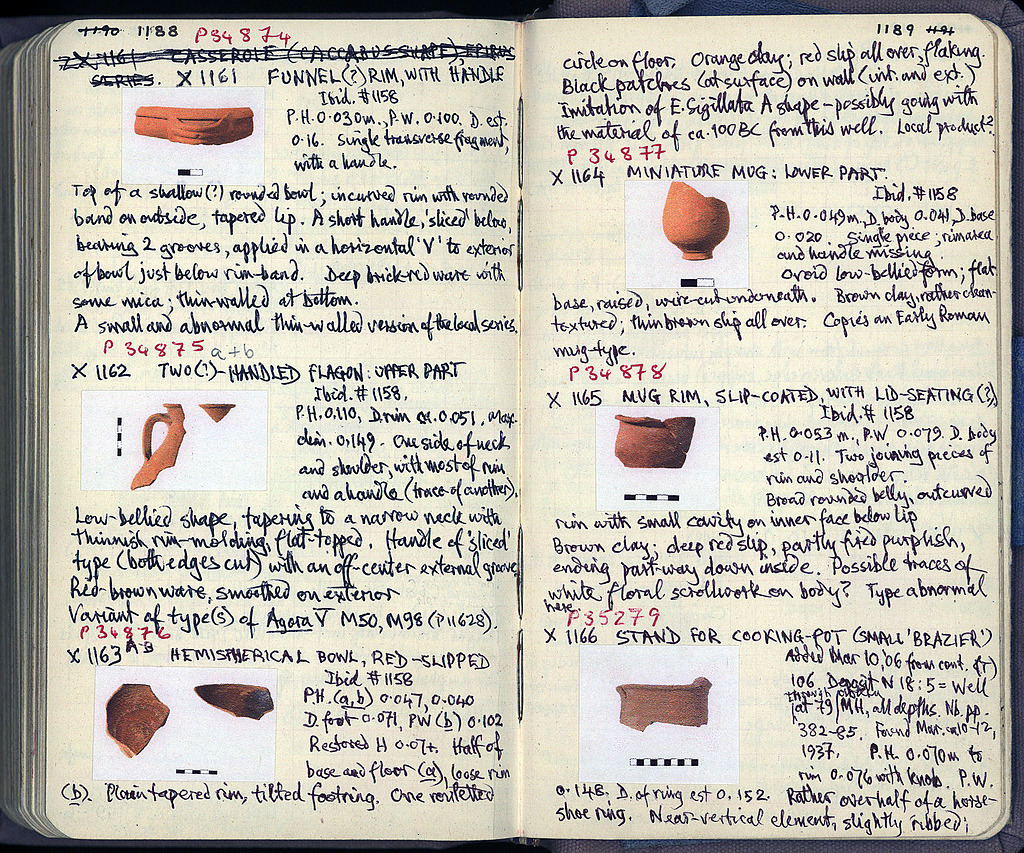 1190 1188 P34874
X 1161 CASSEROLE (CACCABUS SHAPE), EPIRUS
SERIES. X 1161 FUNNEL(?) RIM, WITH HANDLE
Ibid. #1158
P.H. 0.030m., P.W. 0.100. D. est.
0.16. Single transverse fragment,
with a handle.
Top of a shallow(?) rounded bowl; incurved rim with rounded
band on outside, tapered lip. A short handle, 'sliced' below,
bearing 2 grooves, applied in a horizontal 'V' to exterior
of bowl just below rim-band. Deep brick-red ware with
some mica; thin-walled at bottom.
A small and abnormal thin-walled version of the local series.
P 34875 a+b
X 1162 TWO(?)-HANDLED FLAGON: UPPER PART
Ibid. #1158.
P.H. 0.110, D. rim est. 0.051, Max.
dim. 0.149. One side of neck
and shoulder, with most of rim
and a handle (trace of another).
Low-bellied shape, tapering to a narrow neck with
thinnish rim-molding, flat-topped. Handle of 'sliced'
type (both edges cut) with an off-center external groove.
Red-brown ware, smoothed on exterior
Variant of type(s) of Agora V M50, M98 (P11628).
P 34876
X 1163 A-B HEMISPHERICAL BOWL, RED-SLIPPED
Ibid #1158
P.H. (a,b) 0.047, 0.040
D. foot 0.071, PW (b) 0.102
Restored H 0.07+. Half of
base and floor (a), loose rim
(b). Plain tapered rim, tilted footring. One rouletted
1189 1191
circle on floor. Orange clay; red slip all over, flaking.
Black patches (at surface) on wall (int. and ext.)
Imitation of E. Sigillata A shape - possibly going with
the material of ca. 100 BC from this well. Local product?
P 34877
X 1164 MINIATURE MUG: LOWER PART.
Ibid. #1158
P.H. 0.049m, D. body 0.041, D. Base
0.020. Single piece; rim area
and handle missing.
Ovoid low-bellied form; flat
base, raised, wire-cut underneath. Brown clay, rather clean-
textured; thin brown slip all over. Copies an Early Roman
mug-type.
P 34878
X 1165 MUG RIM, SLIP-COATED, WITH LID-SEATING(?)
Ibid. # 1158
P.H. 0.053 m., P.W 0.079. D. body
est 0.11. Two joining pieces of
rim and shoulder.
Broad rounded belly, outcurved
rim with small cavity on inner face below lip
Brown clay; deep red slip, partly fired purplish,
ending part-way down inside. Possible traces of
white floral scrollwork on body? Type abnormal
here.
P35279
X 1166 STAND FOR COOKING-POT (SMALL 'BRAZIER')
Added Mar 10,'06 from cont.
106. Deposit N 18:5 = Well
at 79/MH, all depths. Nb. pp.
382-85. Found Mar. 10-12,
1937. P.H. 0.070m to
rim 0.076 with knob. P.W.
0.148. D. of ring est 0.152. Rather over half of a horse-
shoe ring. Near-vertical element, slightly ribbed;